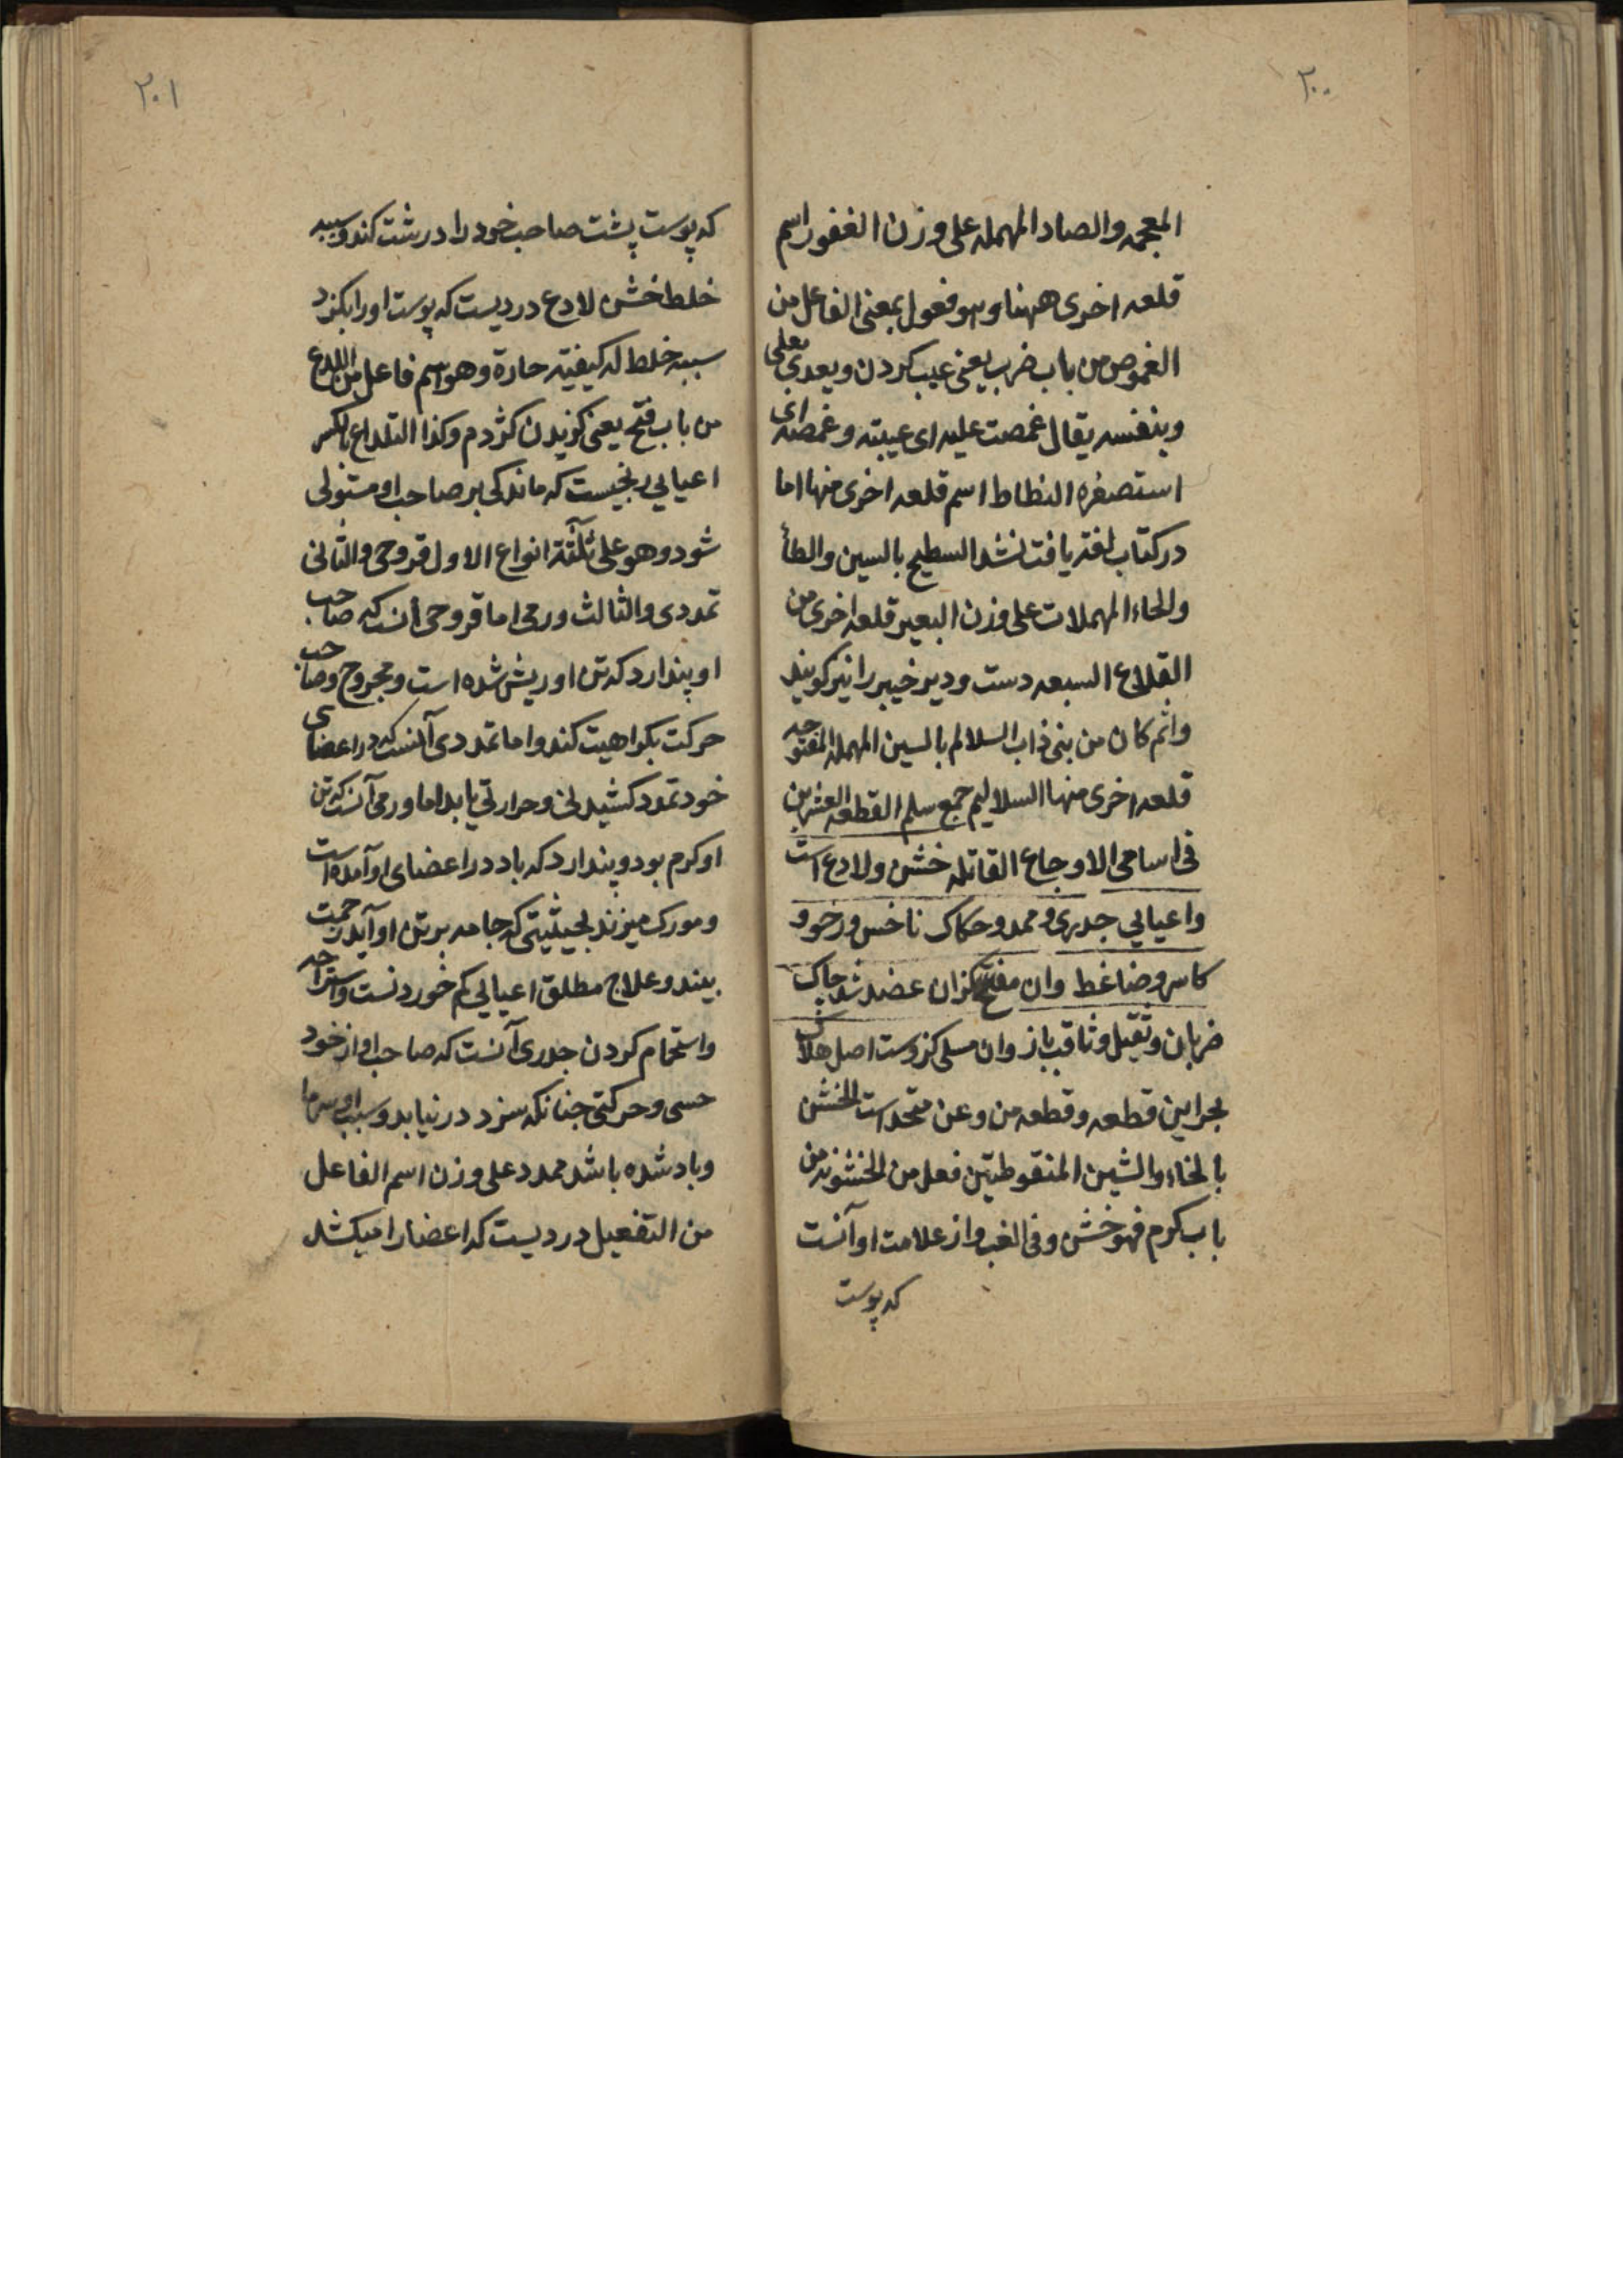 ۲۰۰
المعجمه والصاد المهمله علی وزن الغفور اسم
قلعه اخری ههنا وهو فعول بمعنی الفاعل من
الغموص من باب ضرب یعنی عیب کردن ویعدی بعلی
وبنفسه یقال غمصت علیه ای عیبته وغمصته ای
استصغره النطاط اسم قلعه اخری منها اما
درکتاب لغته یافت نشد السطیح بالسین والطأ
والحاء المهملات علی وزن البعیر قلعه اخری من
القلاع السبعه دست ودیر خیبر را نیز کویند
وانم کان من بنی ذاب السلالم بالسین المهمله المفتوحه
قلعه اخری منها السلالیم جمع سلم القطعه العشرین
فی اسامی الاوجاع القاتله خشن ولادع است
واعیایی جدری وممدد وحکاک ناخس ورخوو
کاسر وضاغط وان مفتح کزان عضد شد چاک
ضربان وثقیل وثاقب باز وان مسلی کزوست اصل هلاک
بحر این قطعه وقطعه من وعن متحد است الخشن
بالخاء والشین المنقوطتین فعل من الخشونه من
باب کرم فهو خشن وفی الغب واز علامت او آنست
که پوست
۲۰۱
که پوست پشت صاحب خود را درشت کند وسببه
خلط خشن لادع دردیست که پوست او را بکزد
سببه خلط له کیفیته حارة وهو اسم فاعل من اللدع
من باب فتح یعنی کزیدن کژدم وکذا التلداع بالکسر
اعیایی رنجیست که ماندکی بر صاحب او مستولی
شود وهو علی ثلثة انواع الاول قروحی والثانی
تمددی والثالث ورمی اما قروحی آنست که صاحب
او پندارد که تن او ریش شده است ومجروح وصاحب
حرکت بکراهیت کند واما تمددی آنست که در اعضای
خود تمدد کشیدنی وحرارتی یابد اما ورمی آنست که تن
او کرم بود وپندارد که باد در اعضای او آمده است
ومورک میزند بحیثیتی که جامه بر تن او آید زحمت
بیند وعلاج مطلق اعیایی کم خوردنست واستراحه
واستحمام کردن جدری آنست که صاحب او از خود
حسی وحرکتی چنانکه سزد درنیابد وسبب او سرما
وباد شده باشد ممدد علی وزن اسم الفاعل
من التفعیل دردیست که اعضا را میکشد